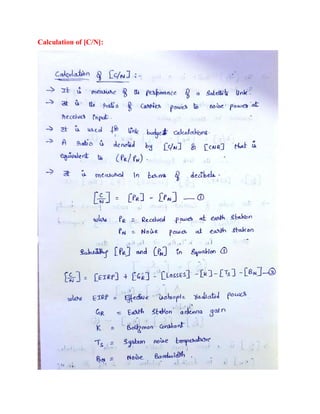 Calculation of [C/N]:
Calculation of [C/N] :-
→ It is measure of the performance of a satellite link.
→ It is the ratio of carrier power to noise power at
Receiver input.
→ It is used for link budget calculations.
→ A Ratio is denoted by [C/N] or [CNR] that is
equivalent to (PR/PN).
→ It is measured in terms of decibels.
[C/N] = [PR] - [PN] — ①
where PR = Received power at earth station
PN = Noise power at earth station
Substituting [PR] and [PN] in Equation ①
[C/N] = [EIRP] + [GR] - [LOSSES] - [K] - [TS] - [BN] — ②
where EIRP = Effective isotropic radiated power
GR = Earth station antenna gain
K = Boltzman Constant
TS = System noise temperature
BN = Noise Bandwidth